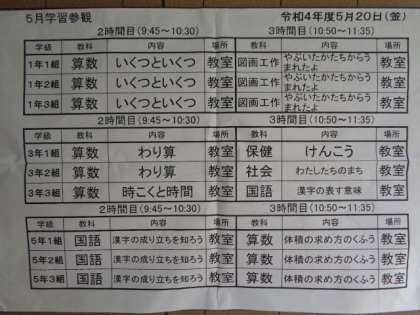 5月学習参観 令和4年度5月20日(金)
2時間目(9:45~10:30) 3時間目(10:50~11:35)
学級 教科 内容 場所 教科 内容 場所
1年1組 算数 いくつといくつ 教室 図画工作 やぶいたかたちからうまれたよ 教室
1年2組 算数 いくつといくつ 教室 図画工作 やぶいたかたちからうまれたよ 教室
1年3組 算数 いくつといくつ 教室 図画工作 やぶいたかたちからうまれたよ 教室
2時間目(9:45~10:30) 3時間目(10:50~11:35)
学級 教科 内容 場所 教科 内容 場所
3年1組 算数 わり算 教室 保健 けんこう 教室
3年2組 算数 わり算 教室 社会 わたしたちのまち 教室
3年3組 算数 時こくと時間 教室 国語 漢字の表す意味 教室
2時間目(9:45~10:30) 3時間目(10:50~11:35)
学級 教科 内容 場所 教科 内容 場所
5年1組 国語 漢字の成り立ちを知ろう 教室 算数 体積の求め方のくふう 教室
5年2組 国語 漢字の成り立ちを知ろう 教室 算数 体積の求め方のくふう 教室
5年3組 国語 漢字の成り立ちを知ろう 教室 算数 体積の求め方のくふう 教室